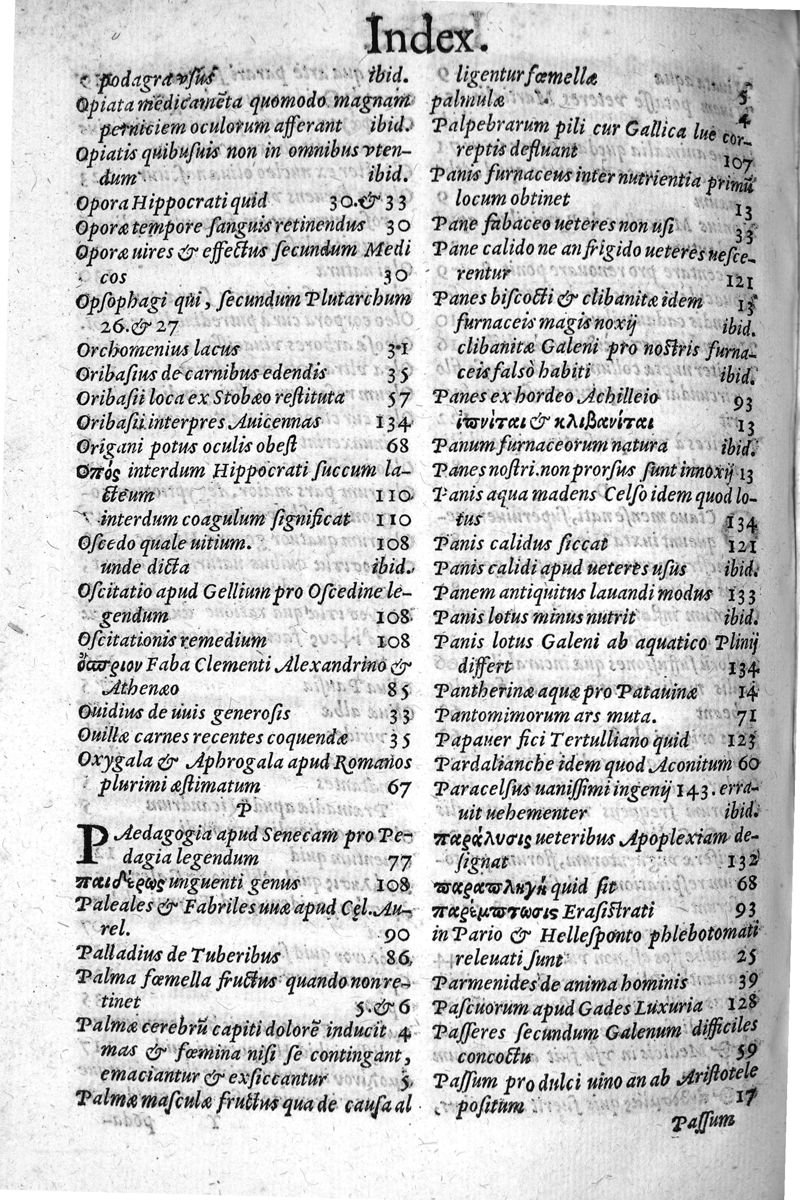 Index.
podagræ vſus ibid.
Opiata medicamẽta quomodo magnam
perniciem oculorum afferant ibid.
Opiatis quibuſuis non in omnibus vten-
dum ibid.
Opora Hippocrati quid 30. & 33
Oporæ tempore ſanguis retinendus 30
Oporæ uires & effectus ſecundum Medi
cos 30
Opſophagi qui, ſecundum Plutarchum
26. & 27
Orchomenius lacus 31
Oribaſius de carnibus edendis 35
Oribaſii loca ex Stobæo reſtituta 57
Oribaſii interpres Auicennas 134
Origani potus oculis obeſt 68
Ὀπός interdum Hippocrati ſuccum la-
cteum 110
interdum coagulum ſignificat 110
Oſcedo quale uitium. 108
unde dicta ibid.
Oſcitatio apud Gellium pro Oſcedine le-
gendum 108
Oſcitationis remedium 108
ὄσπριον Faba Clementi Alexandrino &
Athenæo 85
Ouidius de uuis generoſis 33
Ouillæ carnes recentes coquendæ 35
Oxygala & Aphrogala apud Romanos
plurimi æſtimatum 67
P
PAedagogia apud Senecam pro Pe-
dagia legendum 77
παιδέρως unguenti genus 108
Paleales & Fabriles uuæ apud Cęl. Au-
rel. 90
Palladius de Tuberibus 86
Palma fœmella fructus quando non re-
tinet 5. & 6
Palmæ cerebrũ capiti dolorẽ inducit 4
mas & fœmina niſi ſe contingant,
emaciantur & exſiccantur 5
Palmæ maſculæ fructus qua de cauſa al
ligentur fœmellæ 5
palmulæ 4
Palpebrarum pili cur Gallica lue cor-
reptis defluant 107
Panis furnaceus inter nutrientia primũ
locum obtinet 13
Pane fabaceo ueteres non uſi 33
Pane calido ne an frigido ueteres ueſce-
rentur 121
Panes biſcocti & clibanitæ idem 13
furnaceis magis noxij ibid.
clibanitæ Galeni pro noſtris furna-
ceis falsò habiti ibid.
Panes ex hordeo Achilleio 93
ἰπνίται & κλιβανίται 13
Panum furnaceorum natura ibid.
Panes noſtri non prorſus ſunt innoxij 13
Panis aqua madens Celſo idem quod lo-
tus 134
Panis calidus ſiccat 121
Panis calidi apud ueteres uſus ibid.
Panem antiquitus lauandi modus 133
Panis lotus minus nutrit ibid.
Panis lotus Galeni ab aquatico Plinij
differt 134
Pantherinæ aquæ pro Patauinæ 14
Pantomimorum ars muta. 71
Papauer fici Tertulliano quid 123
Pardalianche idem quod Aconitum 60
Paracelſus uaniſſimi ingenij 143. erra-
uit uehementer ibid.
παράλυσις ueteribus Apoplexiam de-
ſignat 132
παραπληγὴ quid ſit 68
παρέμπτωσις Eraſiſtrati 93
in Pario & Helleſponto phlebotomati
releuati ſunt 25
Parmenides de anima hominis 39
Paſcuorum apud Gades Luxuria 128
Paſſeres ſecundum Galenum difficiles
concoctu 59
Paſſum pro dulci uino an ab Ariſtotele
poſitum 17
Paſſum